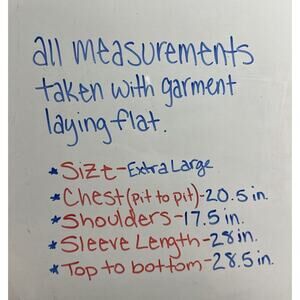 all measurements
taken with garment
laying flat.
*Size-Extra Large
*Chest(pit to pit)-20.5 in.
*Shoulders-17.5 in.
*Sleeve Length-28 in.
*Top to bottom-28.5 in.